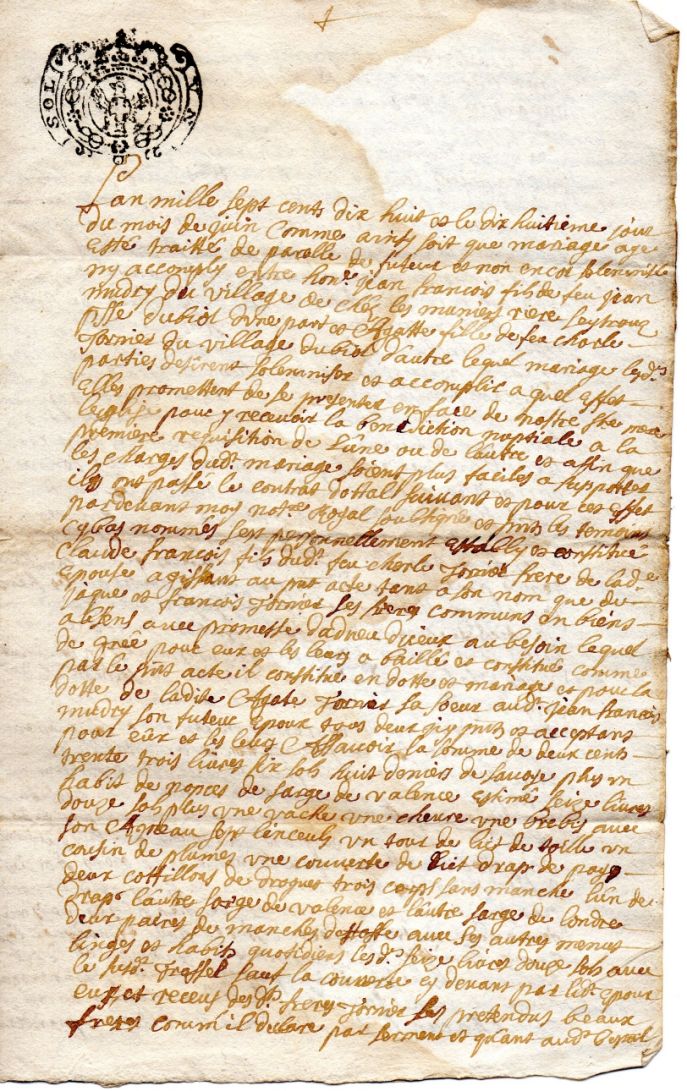 VN SOL
Lan mille sept cents dix huit et le dix huitieme jour
du mois de juin Comme ainsy soit que mariage aye
esté traitté de parolle de futeur et non encor solemnisé
ny accomply entre hon.e jean francois fils de feu jean
mudry du village de Chés les maniers riere Seytroux
psse dubiot dune part et Agatte fille de feu Charle
Tornier du village dubiot dautre lequel mariage lesd.s
parties desirent solemniser et accomplir a quel effet
Elles promettent de se presenter en face de nostre Ste mere
leglise pour y recevoir la benediction nuptiale a la
premiere requisition de lune ou de lautre et affin que
les charges dud.t mariage soient plus faciles a supporter
ils ont passé le contrat dottal suivant et pour ces effet
pardevant moy not.re Royal soubsigné et pnts les temoins
cybas nommés sest personnellement establys et constitué
Claude francois fils dud.t feu cherle Tornier frere de lad.e
epouse agissant au pnt acte tant a son nom que de
jaque et francois Tornier ses freres communs en biens
absens avec promesse dadveu diceux au besoin lequel
de gree pour eux et les leurs a baillé et constitué comme
par le pnt acte il constitue en dotte et mariage et pour la
dotte de ladite Agate Tornier sa soeur aud.t jean francois
mudry son futeur epoux tous deux icy pnts et acceptans
pour eux et les leurs Assavoir la somme de deux cents
trente trois livres six sols huit deniers de savoye plus un
habit de nopces de sarge de valence estimé seize livres
douze sols plus une vache une chevre une brebis avec
son Agneau sept linceuls un tour de lict de toille un
cousin de plumes une couverte de lict drap de pays
deux cottillons de droguet trois corps sans manche lun de
drap lautre sarge de valence et lautre sarge de londre
deux paires de manches destoffe avec ses autres menus
linges et habits quotidiens les d.s seize livres douze sols avec
le susd.t trossel sauf la couverte cy devant par led.t epoux
eus et receus desd.ts freres Tornier ses pretendus beaux
freres comm il declare par serment et quant aud.t